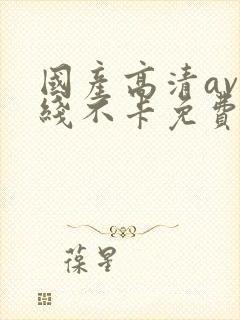 國產高清av
綫不卡免費
葆星